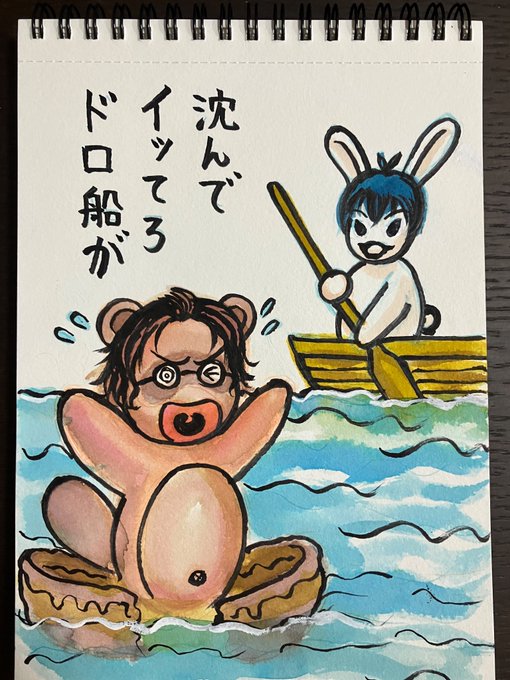 沈んで
イッてろ
ドロ船が